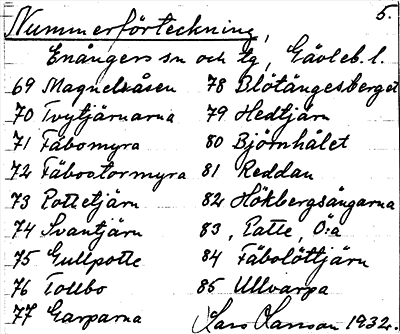 Nummerförteckning, 5.
Enångers sn och tg, Gävleb. l.
69 Magnelsåsen
70 Tvytjärnarna
71 Fäbomyra
72 Fäbostormyra
73 Pottetjärn
74 Svantjärn
75 Gullpotte
76 Tollbo
77 Garparna
78 Blötängesberget
79 Hedtjärn
80 Björnhålet
81 Reddan
82 Hökbergsångarna
83, Patte, Ö:a
84 Fäbolöttjärn
85 Ullvarpa
Lars Larsson 1932.